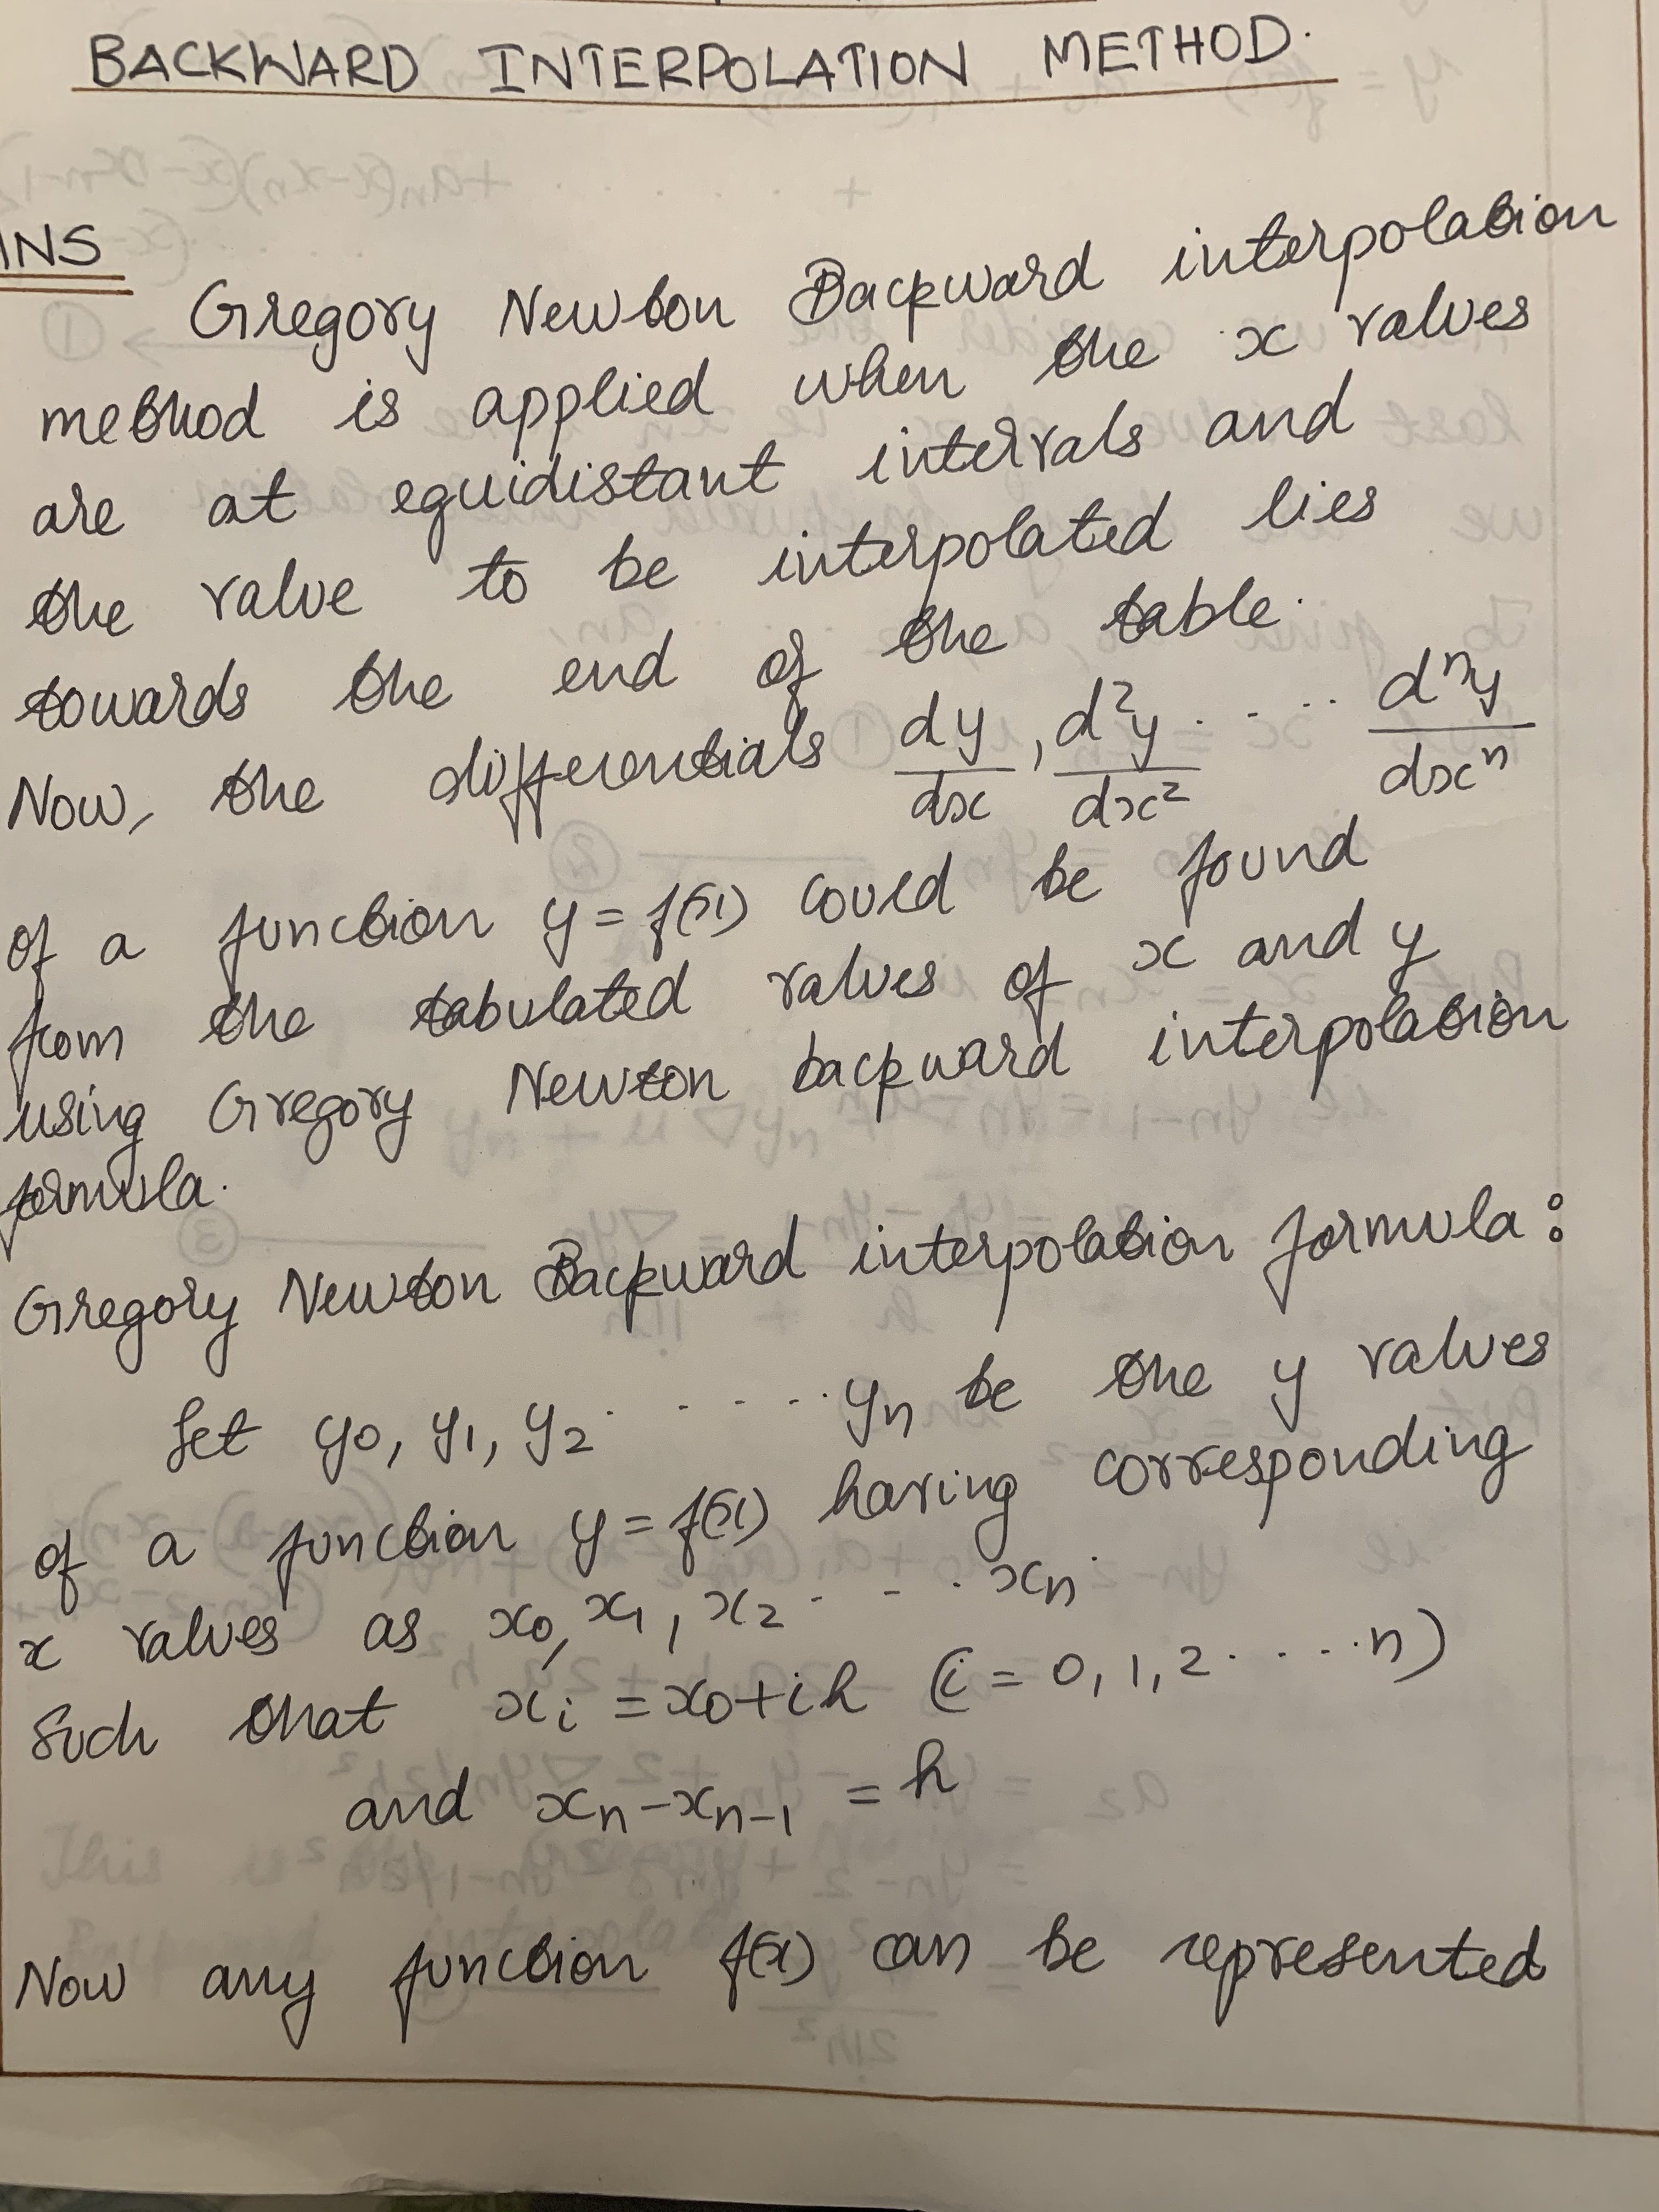 BACKWARD INTERPOLATION METHOD.
ANS
Gregory Newton Backward interpolation
method is applied when the x values
are at equidistant intervals and
the value to be interpolated lies
towards the end of the table.
Now, the differentials dy/dx, d²y/dx² ..... dⁿy/dxⁿ
of a function y = f(x) could be found
from the tabulated values of x and y
using Gregory Newton backward interpolation
formula.
Gregory Newton Backward interpolation formula:
Let y₀, y₁, y₂ ...... yₙ be the y values
of a function y = f(x) having corresponding
x values as x₀, x₁, x₂ .... xₙ.
Such that xᵢ = x₀+ih (i = 0, 1, 2 .....n)
and xₙ-xₙ₋₁ = h
Now any function f(x) can be represented